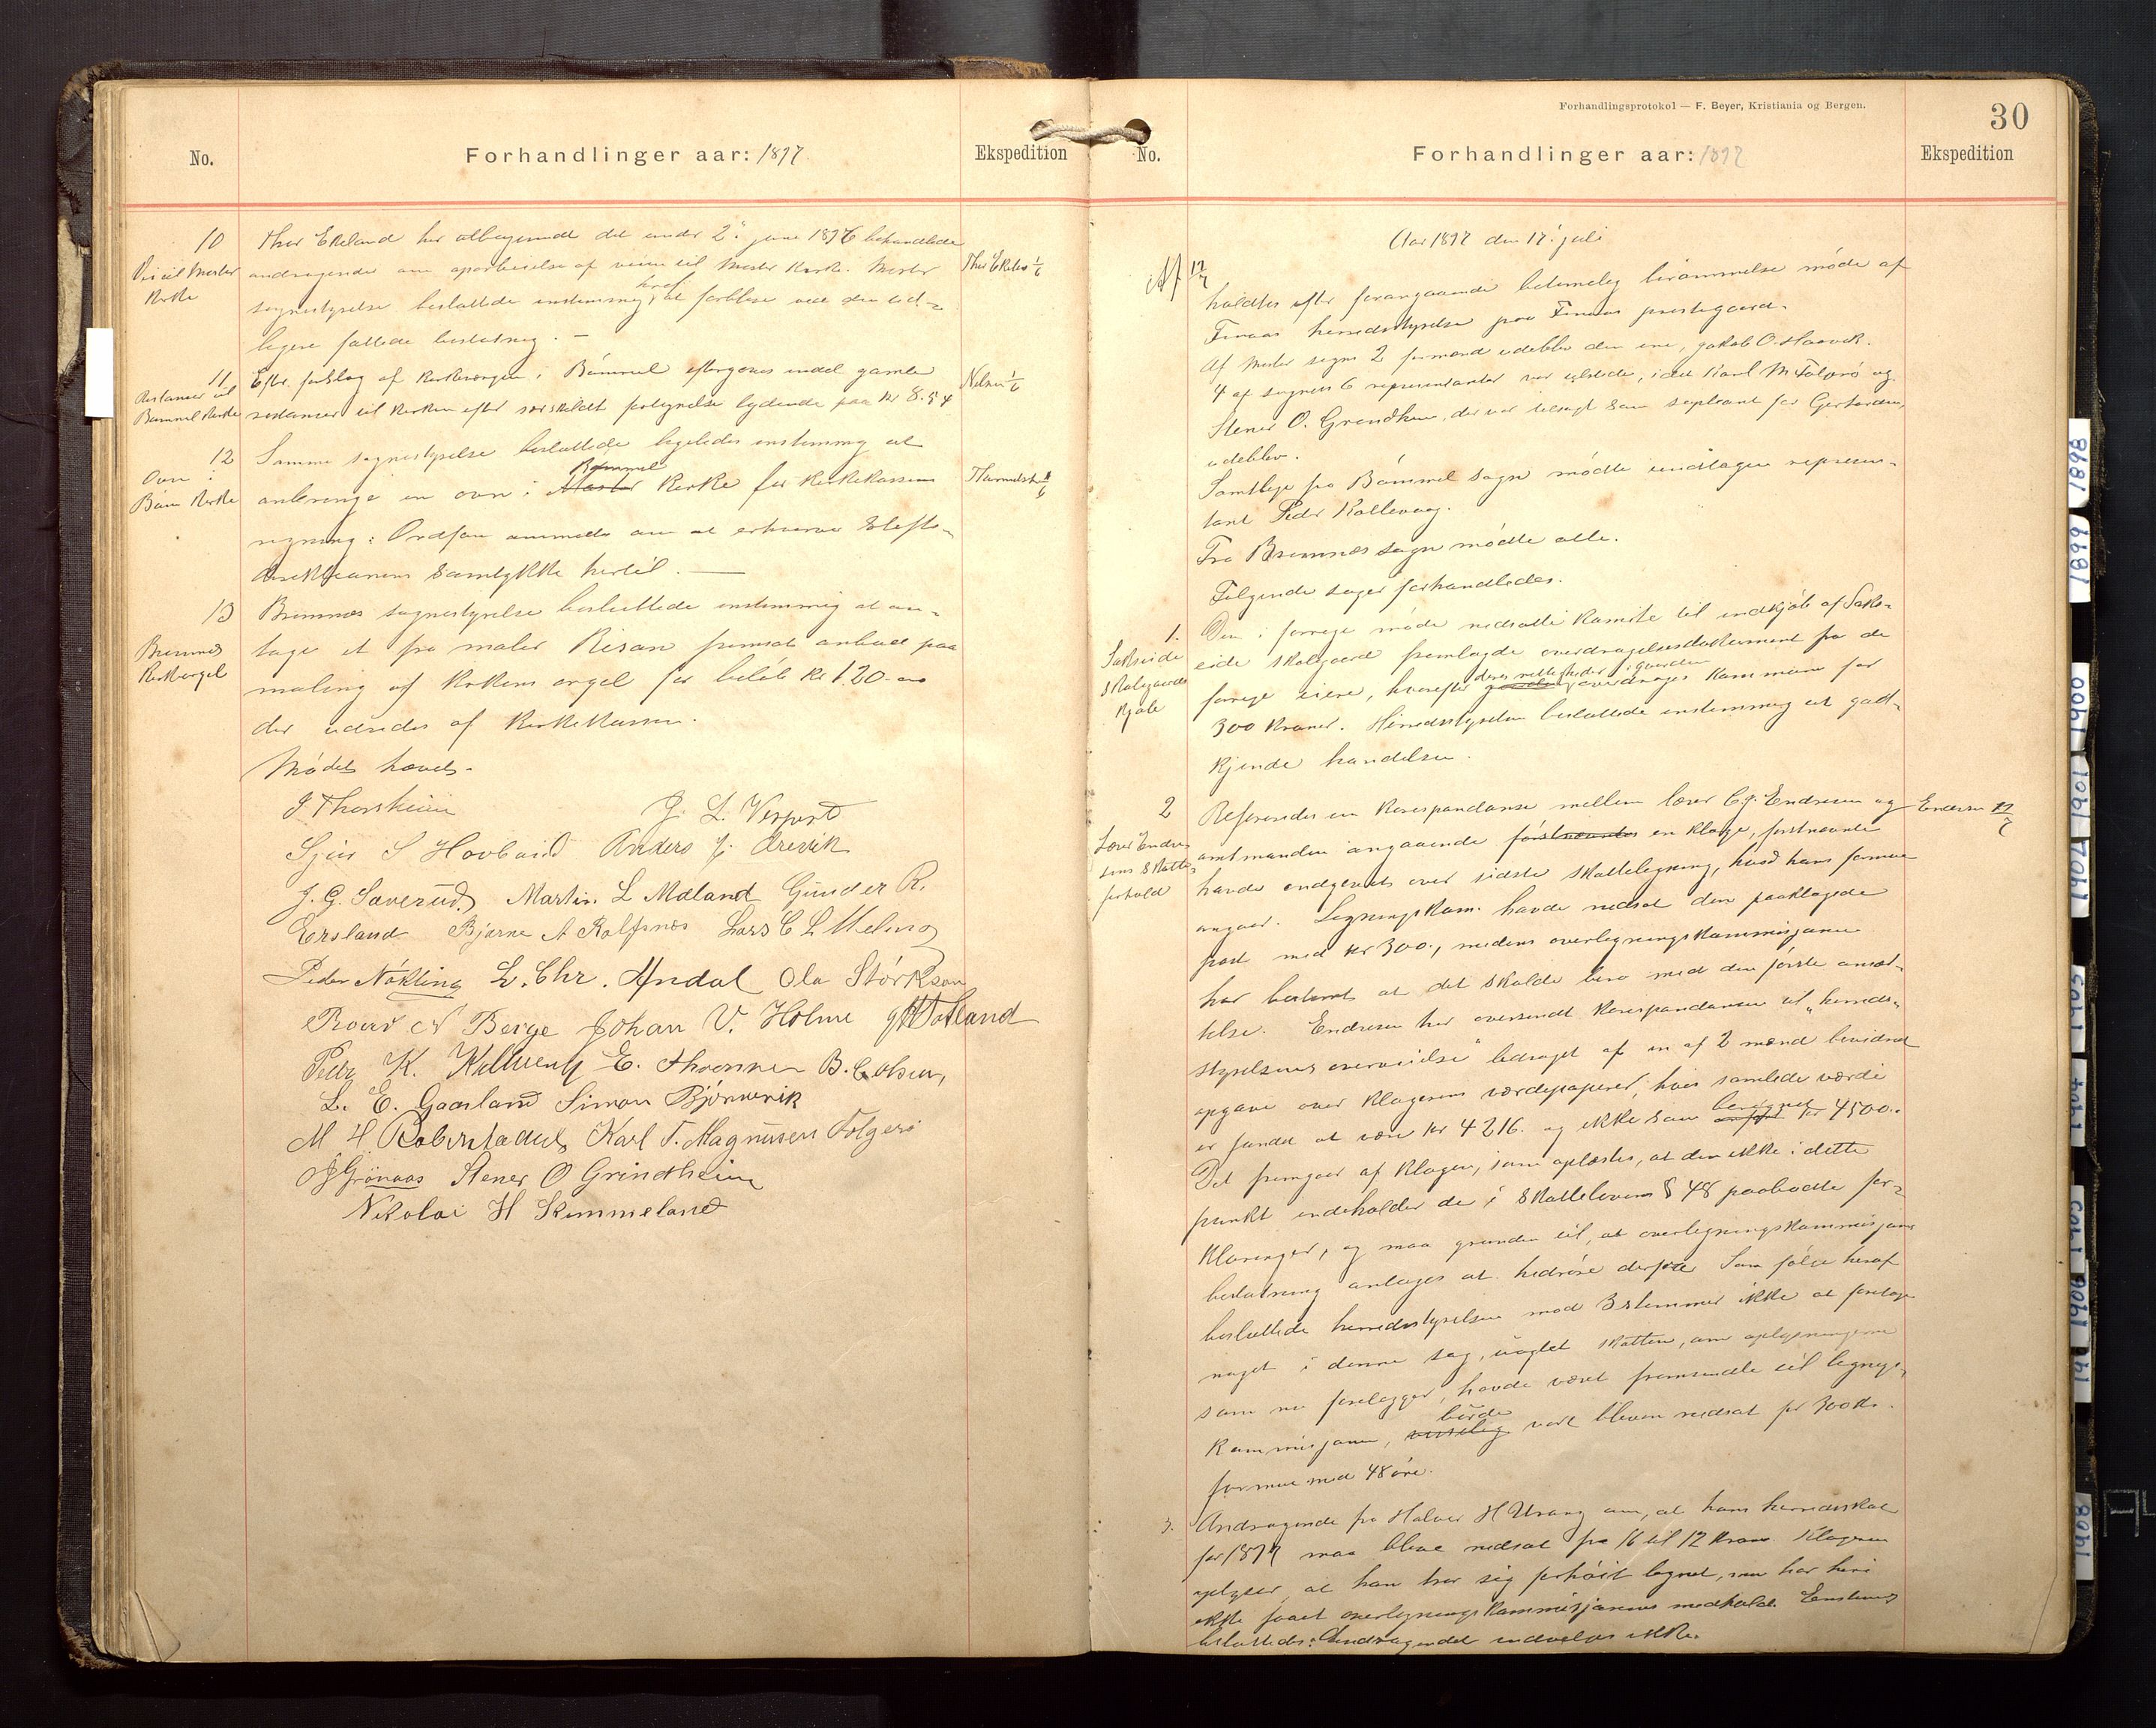 No.
Forhandlinger aar: 1897
Ekspedition
10
Vei til Moster
Kirke
Thor Ekeland har atbegjæret det under 2. juni 1896 behandlede
andragende om oparbeidelse af veien til Moster Kirke. Moster
sognestyrelse besluttede enstemmig at forblive ved den tid-
ligere fattede beslutning. —
Thor Ekeland 1/6
11
Restancer til
Bømmel Kirke
Efter forslag af Kirkeværgen i Bømmel eftergives endel gamle
restancer til Kirken efter særskildt fortegnelse lydende paa kr 8.54
Nilsen 1/6
12
Ovn i
Bøm Kirke
Samme sognestyrelse besluttede ligeledes enstemmig at
Bømmel
anbringe en ovn i Moster Kirke for Kirkekassens
regning: Ordføre anmodes om at erhverve Stifts-
direktionens Samtykke hertil. —
13
Bremnes
Kirkeorgel
Bremnæs sognestyrelse besluttede enstemmig at an-
tage et fra maler Risan fremsat anbud paa
maling af Kirkens orgel for beløb kr 120 -
der udredes af Kirkekassen.
Mødet hævet.
J. Thorsheim J. L. Vespestad
Sjur S Hovland Anders J. Årevik
J. G. Saverud Martin L Mæland Gunder R.
Ersland Bjarne A Rolfsnes Lars C L Meling
Peder Nökling L. Chr. Andal Ola Störkson
Baard N Berge Johan V. Holme Totland
Peder K. Kallevaag E. Thorsen B. C. Olsen,
L. E. Gaasland Simon Björnevik
M H Robberstadnes Karl T. Magnusen Folgerö
J Grönaas Stener O Grindheim
Nikolai H Skimmeland
Forhandlingsprotokol — F. Beyer, Kristiania og Bergen.
30
No.
Forhandlinger aar: 1897
Ekspedition
Aar 1897 den 17. juli
Af 17/7
holdtes efter forangaaende betimelig berammelse møde af
Finaas herredsstyrelse paa Finaas prestegaard.
Af Moster sogns 2 formænd udeblev den ene, Jakob O. Haavik.
4 af sognets 6 representanter var tilstede, idet Karl M Folgerö og
Stener O. Grindheim, der var tilsagt som suppleant for Gerhardsen,
udeblev.
Samtlige fra Bømmel Sogn mødte undtagen represen-
tant Peder Kallevaag.
Fra Bremnæs sogn mødte alle.
Følgende sager forhandledes.
1.
Sakseide
Skolegaards
Kjøb
Den i forrige møde nedsatte Komite til indkjøb af Saks-
eide skolegaard fremlagde overdragelsesdokument fra de
deres rettigheder i gaarden
forrige eiere, hvorefter gaarden overdrages Kommunen for
300 Kroner. Herredsstyrelsen besluttede enstemmig at god-
kjende handelen.
2
Lærer Endre-
sens Skatte-
forhold
Refereredes en Korrespondanse mellem lærer C. J. Endresen og
amtmanden angaaende førstnævntes en klage, førstnævnte
havde indgivet over sidste skattelegning, hvad hans formue
angaar. Legningskom. havde nedsat den paaklagede
post med kr 300., medens overlegningskommissjonen
har bestemt at det skulde bero med den første ansæt-
telse. Endresen har oversendt Korrespondansen til „herreds-
styrelsens overveielse" ledsaget af en af 2 mænd bevidnet
opgave over klagerens værdipapirer, hvis samlede værdi
beregnet
er fundet at være kr 4216. og ikke som kr 4500.
Det fremgaar af klagen, som oplæstes, at den ikke i dette
punkt indeholder de i Skattelovens § 48 paabudte for-
klaringer, og maa grunden til, at overlegningskommissjonens
beslutning antages at hidrøre derfra. Som følge heraf
besluttede herredsstyrelsen mod 3 stemmer ikke at foretage
noget i denne sag, uagtet skatten, om oplysningerne
som nu foreligger, havde været fremsendte til legnings-
burde
kommissjonen, vært bleven nedsat for 300 kr.
formue med 48 øre.
Endresen 17/7
3.
Andragende fra Halvor H Urang om, at hans herredsskat
for 1897 maa blive nedsat fra 16 til 12 Kroner. Klageren
oplyser, at han tror sig forhøit lignet, men har heri
ikke faaet overlegningskommissjonens medhold. Enstemmig
besluttedes: Andragendet indvilges ikke.
1898
1899
1900
1901
1902
1903
1904
1905
1906
1908